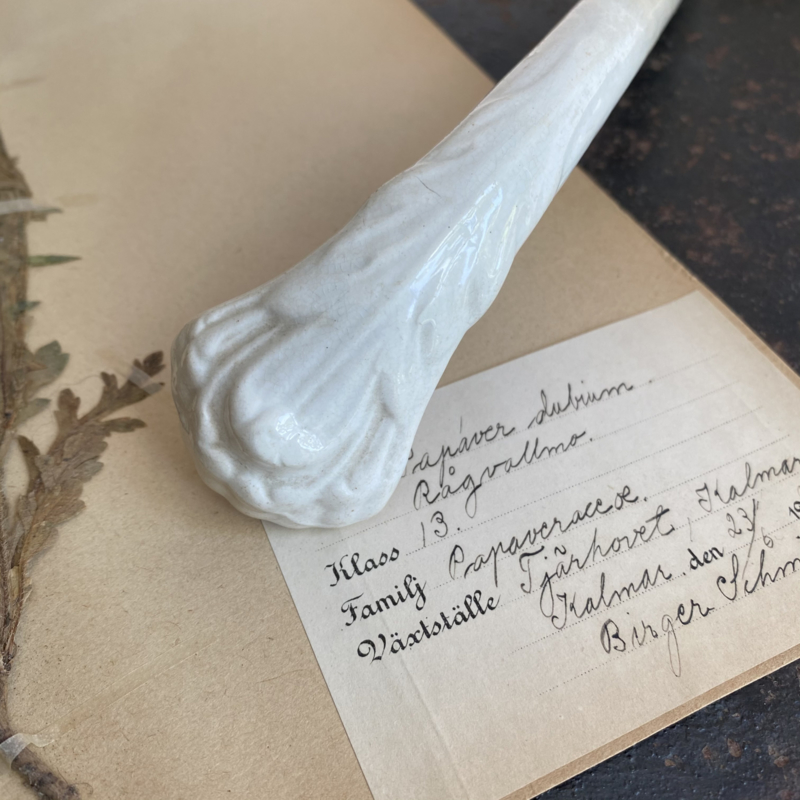 Papaver dubium.
Rågvallmo.
Klass 13.
Familj Papaveraceæ.
Växtställe Tjärhovet, Kalmar
Kalmar, den 23/6 19
Birger